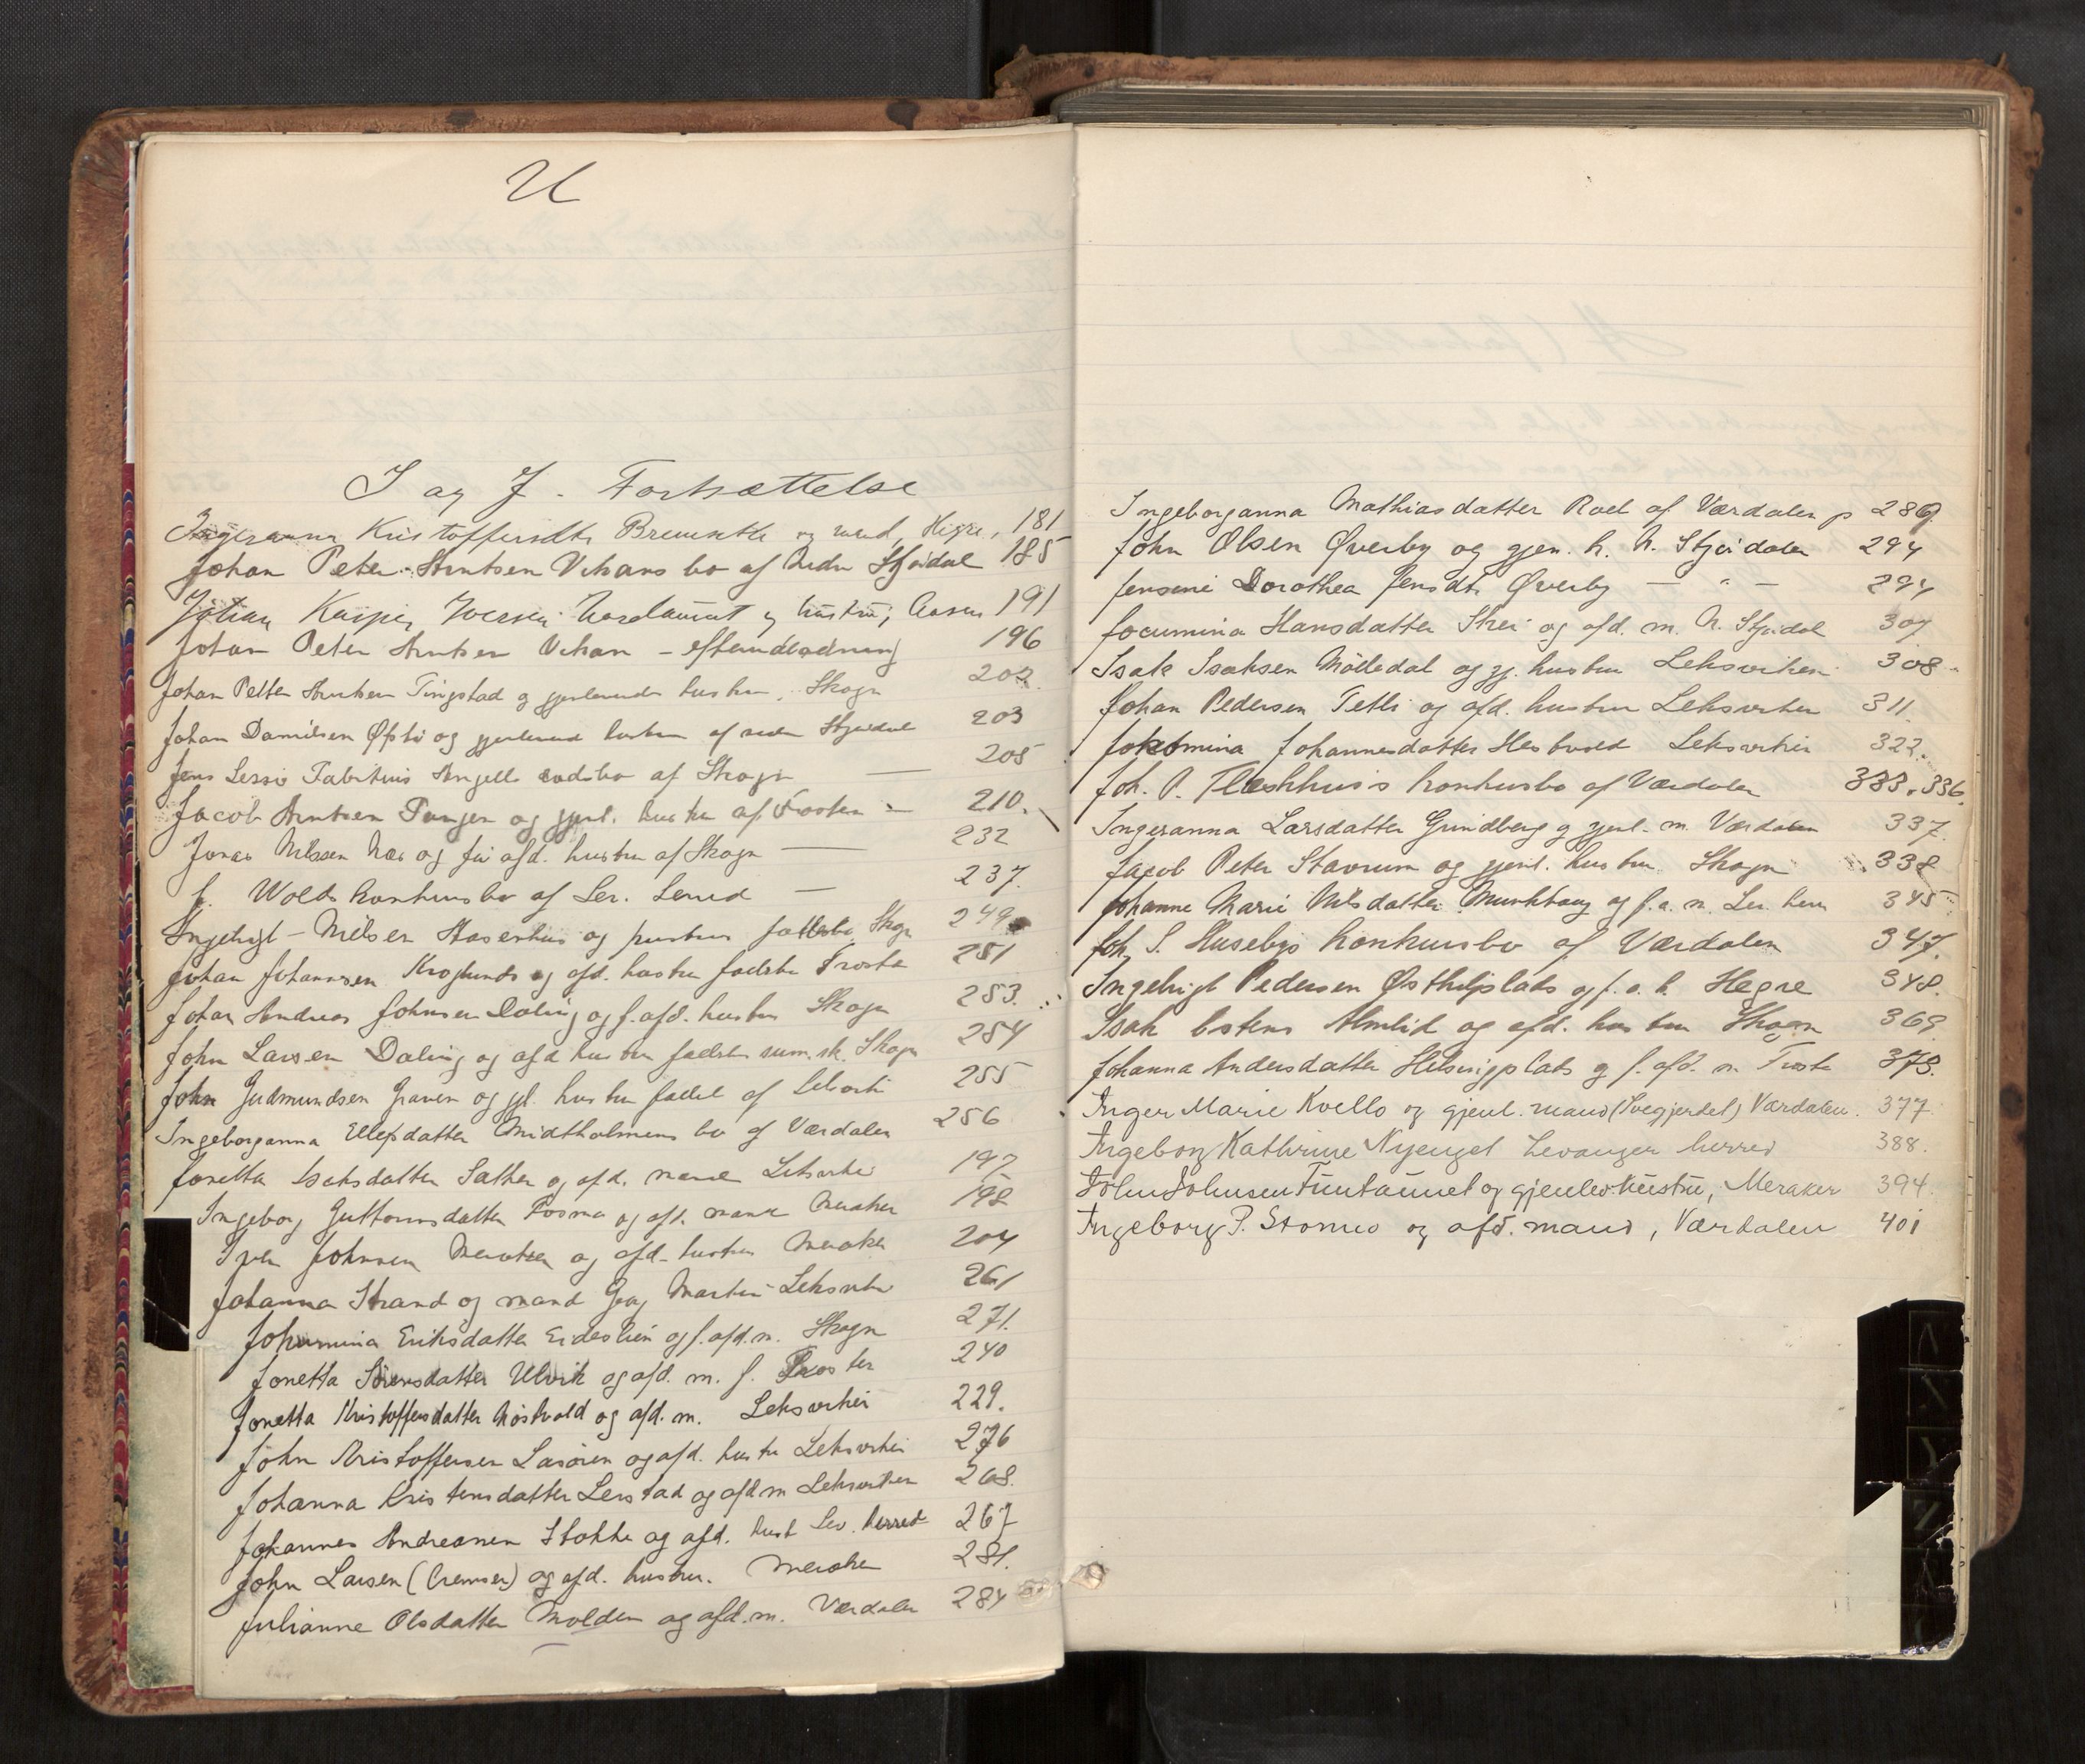 U
I og J. Fortsættelse
Ingeranna Kristoffersdtr Bremseth og mand, Hegre, 181
Johan Peter Arntsen Vikans bo af Nedre Stjørdal 185
Johan Kasper Iversen Nordaunet og hustru, Aasen 191
Johan Peter Arntsen Vikan - efterudlodning 196
Johan Petter Arntsen Tingstad og gjenlevende hustru, Skogn 202
Johan Danielsen Øfsti og gjenlevend hustru af nedre Stjørdal 203
Jens Lessio Fabritius Angell dødsbo af Skogn — 205
Jacob Arntsen Tangen og gjenl. hustru af Frosten - 210.
Jonas Nilssen Næs og før afd. hustru af Skogn — 232
J. Wolds konkursbo af Lev. Herred — 237.
Ingebrigt Nilsen Hasenhus og hustrus fællesbo Skogn 249
Johan Johannsen Kroglunds og afd. hustru fælesbo Frosta 251
Johan Andreas Johnsen Daling og f. afd. hustru Skogn 253.
John Larsen Daling og afd hustru fælesbo sum. sk. Skogn 254
John Gudmundsen Graven og gjl. hustru fælleb af Leksvik 255
Ingeborganna Ellefsdatter Midtholmens bo af Værdalen 256
Jonetta Isaksdatter Sæther og afd. mand Leksviken 197
Ingeborg Guttormsdatter Fosma og afd. mand Meraker 198
Iver Johnsen Meraker og afd. hustru Meraker 204
Johanna Strand og mand Georg Martin Leksviken 261
Johannina Eriksdatter Eideslien og f. afd. m. Skogn 271.
Jonetta Sörensdatter Ulvik og afd. m. f. Frosten 240
Jonetta Kristoffersdatter Möstvold og afd. m. Leksviken 229.
John Kristoffersen Lasören og afd. hustr Leksviken 276
Johanna Kristensdatter Lerstad og afd m Leksviken 268.
Johannes Andreasen Stokke og afd. hust Lev. herred 267
John Larsen (Cremser) og afd. hustru. Meraker 281.
Julianne Olsdatter Molden og afd. m. Værdalen 284
Ingeborganna Mathiasdatter Roel af Værdalen p 289.
John Olsen Øverby og gjen. h. N. Stjørdalen 294
Jensine Dorothea Jensdtr Øverby — " — 294
Jocumina Hansdatter Skei og afd. m. N. Stjørdal 307
Isak Isaksen Mölledal og gj. hustru Leksviken 308
Johan Pedersen Tetli og afd. hustru Leksviken 311
Jokomina Johannesdatter Hesbvold Leksviken 322.
Joh. P. Fleskhus's konkursbo af Værdalen 333, 336.
Ingeranna Larsdatter Grindberg og gjenl. m. Værdalen 337.
Jacob Peter Stavrum og gjenl. hustru Skogn 338
Johanne Marie Nilsdatter Munkhaug og f. a. m. Lev. herr 345
Joh. S. Husebys konkursbo af Værdalen 347.
Ingebrigt Pedersen Østkilplads og f. a. h. Hegre 348.
Isak Estens Almlid og afd. hustru Skogn 369
Johanna Andersdatter Helsingplads og f. afd. m Frosta 373.
Inger Marie Kvello og gjenl. mand (Svegjerdet) Værdalen. 377
Ingeborg Kathrine Nyenget Levanger herred 388.
John Johnsen Funtaunet og gjenlev. hustru, Meraker 394.
Ingeborg P. Stomno og afd. mand, Værdalen 401